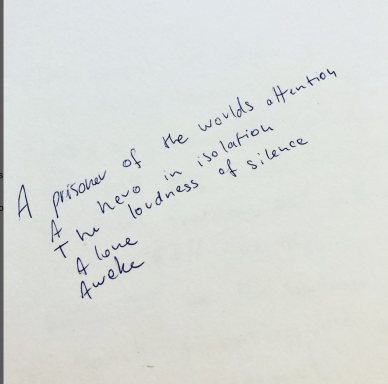 A prisoner of the worlds attention
A hero in isolation
The loudness of silence
Alone
Awake